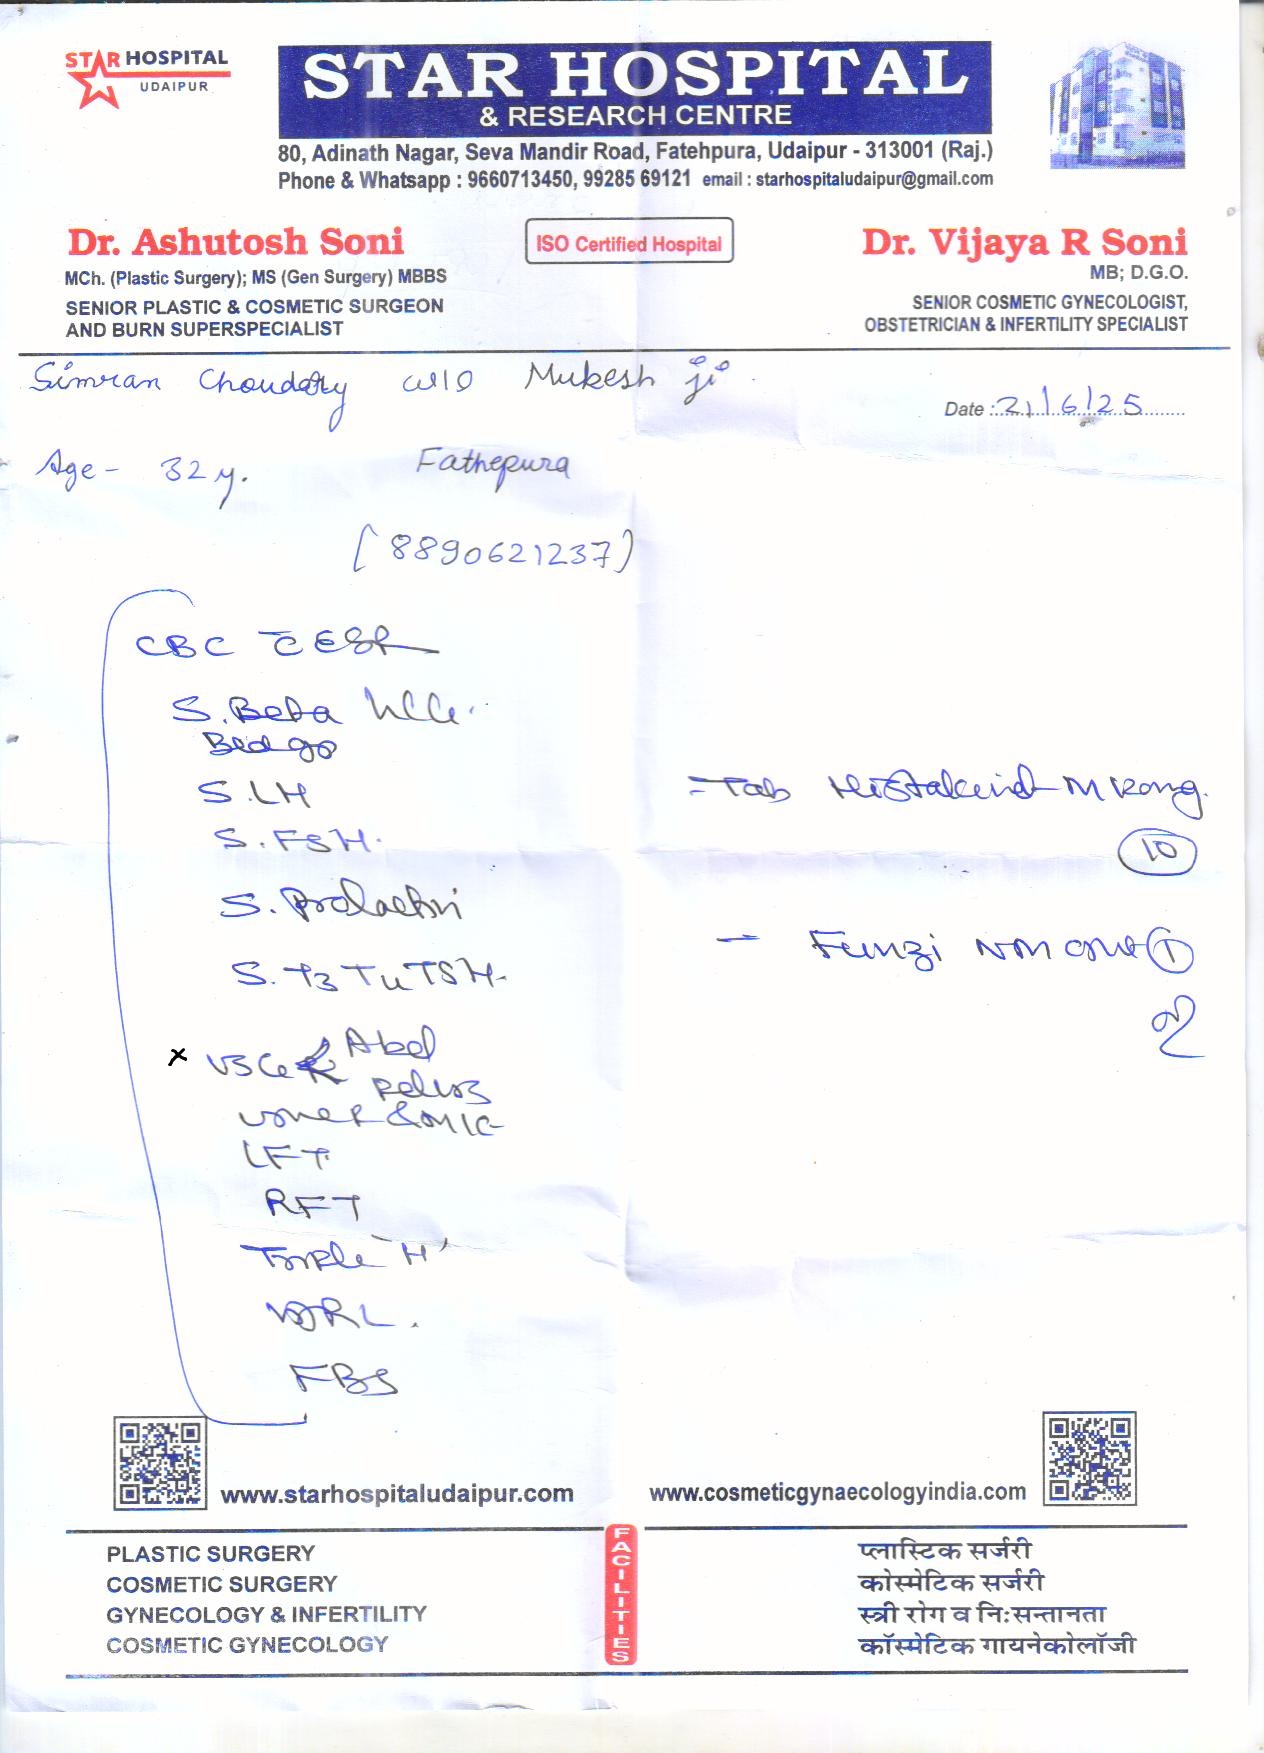 STAR HOSPITAL
UDAIPUR
STAR HOSPITAL
& RESEARCH CENTRE
80, Adinath Nagar, Seva Mandir Road, Fatehpura, Udaipur - 313001 (Raj.)
Phone & Whatsapp : 9660713450, 99285 69121 email : starhospitaludaipur@gmail.com
Dr. Ashutosh Soni
MCh. (Plastic Surgery); MS (Gen Surgery) MBBS
SENIOR PLASTIC & COSMETIC SURGEON
AND BURN SUPERSPECIALIST
ISO Certified Hospital
Dr. Vijaya R Soni
MB; D.G.O.
SENIOR COSMETIC GYNECOLOGIST,
OBSTETRICIAN & INFERTILITY SPECIALIST
Simran Choudary w/o Mukesh ji
Date : 21/6/25
Age - 32 y. Fathepura
[8890621237)
CBC C ESR
S. Beta
S. LH
S. FSH.
S. Prolactin
S. T3 T4 TSH.
x
LFT
RFT
Triple 'H'
VDRL.
FBS
- Tab
10
- 1
www.starhospitaludaipur.com
www.cosmeticgynaecologyindia.com
FACILITIES
PLASTIC SURGERY
COSMETIC SURGERY
GYNECOLOGY & INFERTILITY
COSMETIC GYNECOLOGY
प्लास्टिक सर्जरी
कोस्मेटिक सर्जरी
स्त्री रोग व निःसन्तानता
कॉस्मेटिक गायनेकोलॉजी